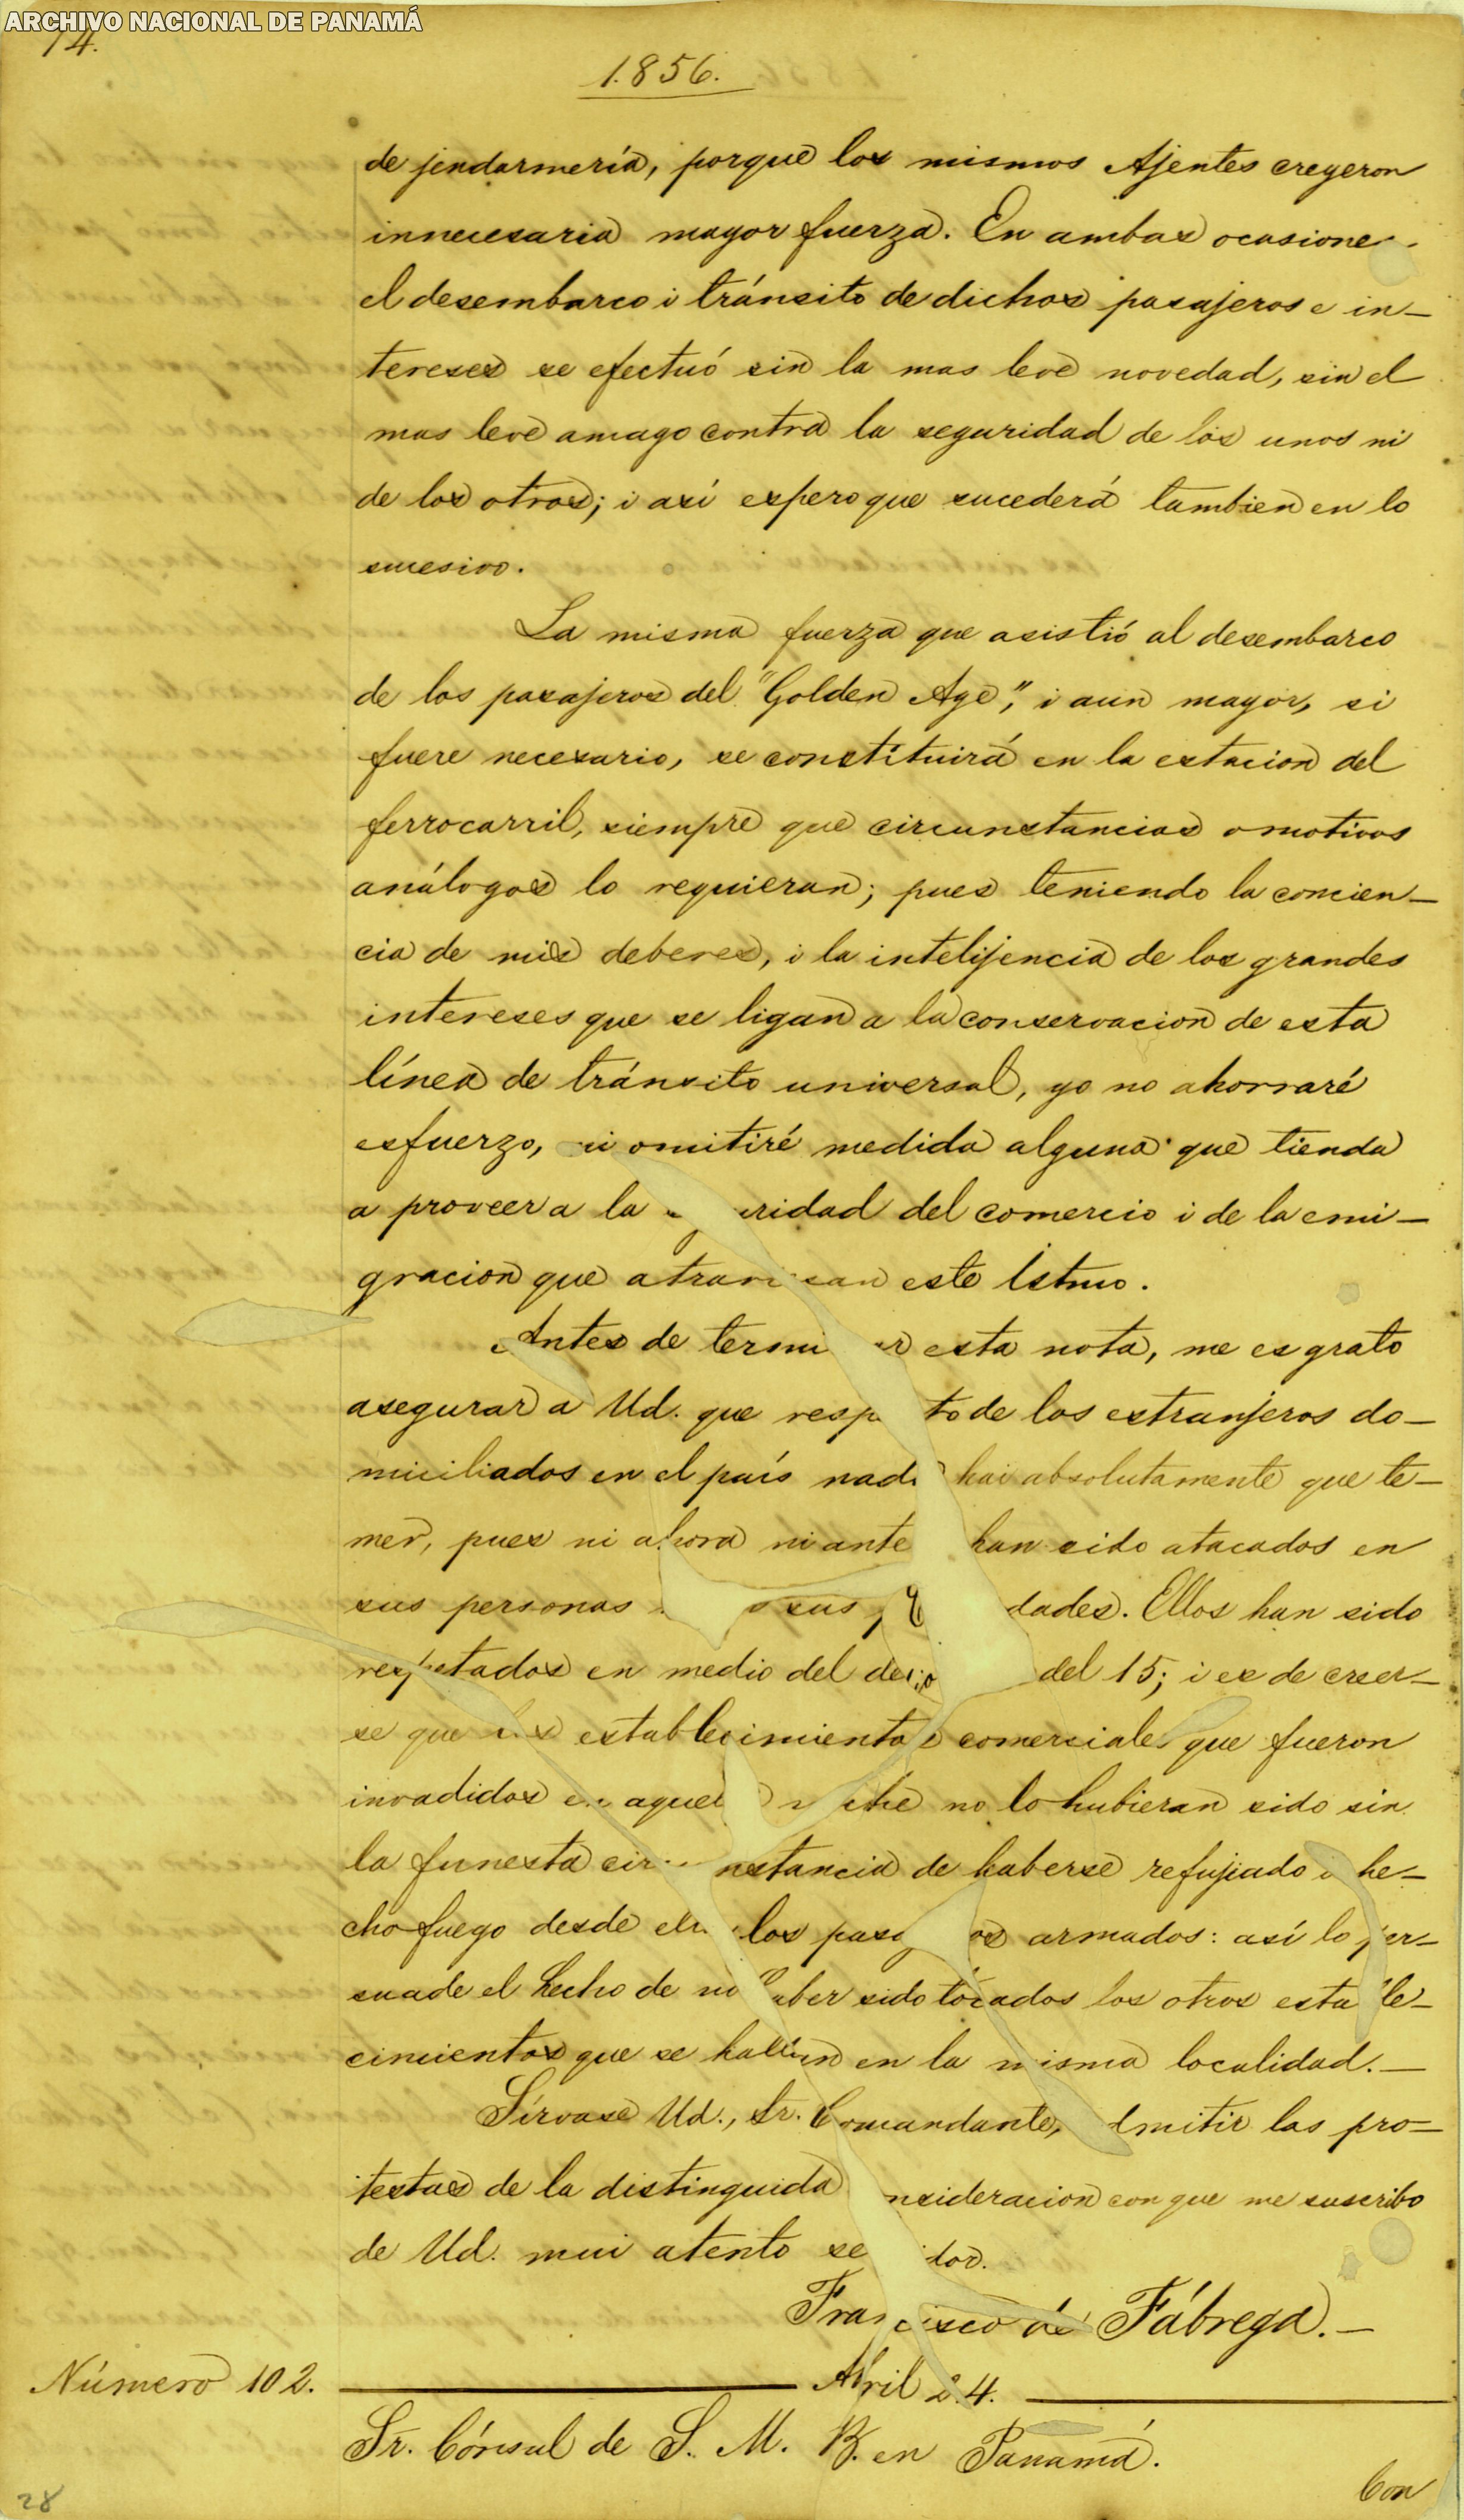 ARCHIVO NACIONAL DE PANAMÁ
14.
1856.
de jendarmería, porque los mismos Ajentes creyeron
innecesaria mayor fuerza. En ambas ocasiones
el desembarco i tránsito de dichos pasajeros e in-
tereses se efectuó sin la mas leve novedad, sin el
mas leve amago contra la seguridad de los unos ni
de los otros; i así espero que sucederá tambien en lo
sucesivo.
La misma fuerza que asistió al desembarco
de los pasajeros del "Golden Age", i aun mayor, si
fuere necesario, se constituirá en la estacion del
ferrocarril, siempre que circunstancias o motivos
análogos lo requieran; pues teniendo la concien-
cia de mis deberes, i la intelijencia de los grandes
intereses que se ligan a la conservacion de esta
línea de tránsito universal, yo no ahorraré
esfuerzo, ni omitiré medida alguna que tienda
a proveer a la uridad del comercio i de la emi-
gracion que atraviesan este Istmo.
Antes de termi ar esta nota, me es grato
asegurar a Ud. que resp to de los estranjeros do-
miciliados en el país nada hai absolutamente que te-
mer, pues ni ahora ni ante han sido atacados en
sus personas sus dades. Ellos han sido
respetados en medio del del 15; i es de creer-
se que los establecimientos comerciales que fueron
invadidos en aquel che no lo hubieran sido sin
la funesta cir nstancia de haberse refujiado i he-
cho fuego desde el los pasa os armados: así lo per-
suade el hecho de no haber sido tocados los otros estable-
cimientos que se hallan en la misma localidad.-
Sírvase Ud., Sr. Comandante, dmitir las pro-
testas de la distinguida nsideracion con que me suscribo
de Ud. mui atento se idor.
Francisco de Fábrega.-
Número 102.
Abril 24.
Sr. Cónsul de S. M. B. en Panamá.
Con
28